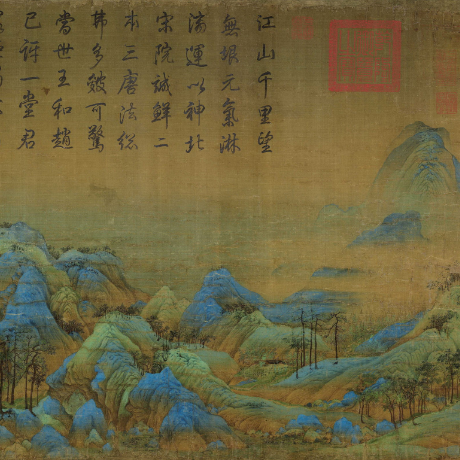 江山千里望
無垠元氣淋
漓運以神北
宋院誠鮮二
本三唐法総
弗多皴可驚
當世王和趙
已訝一堂君